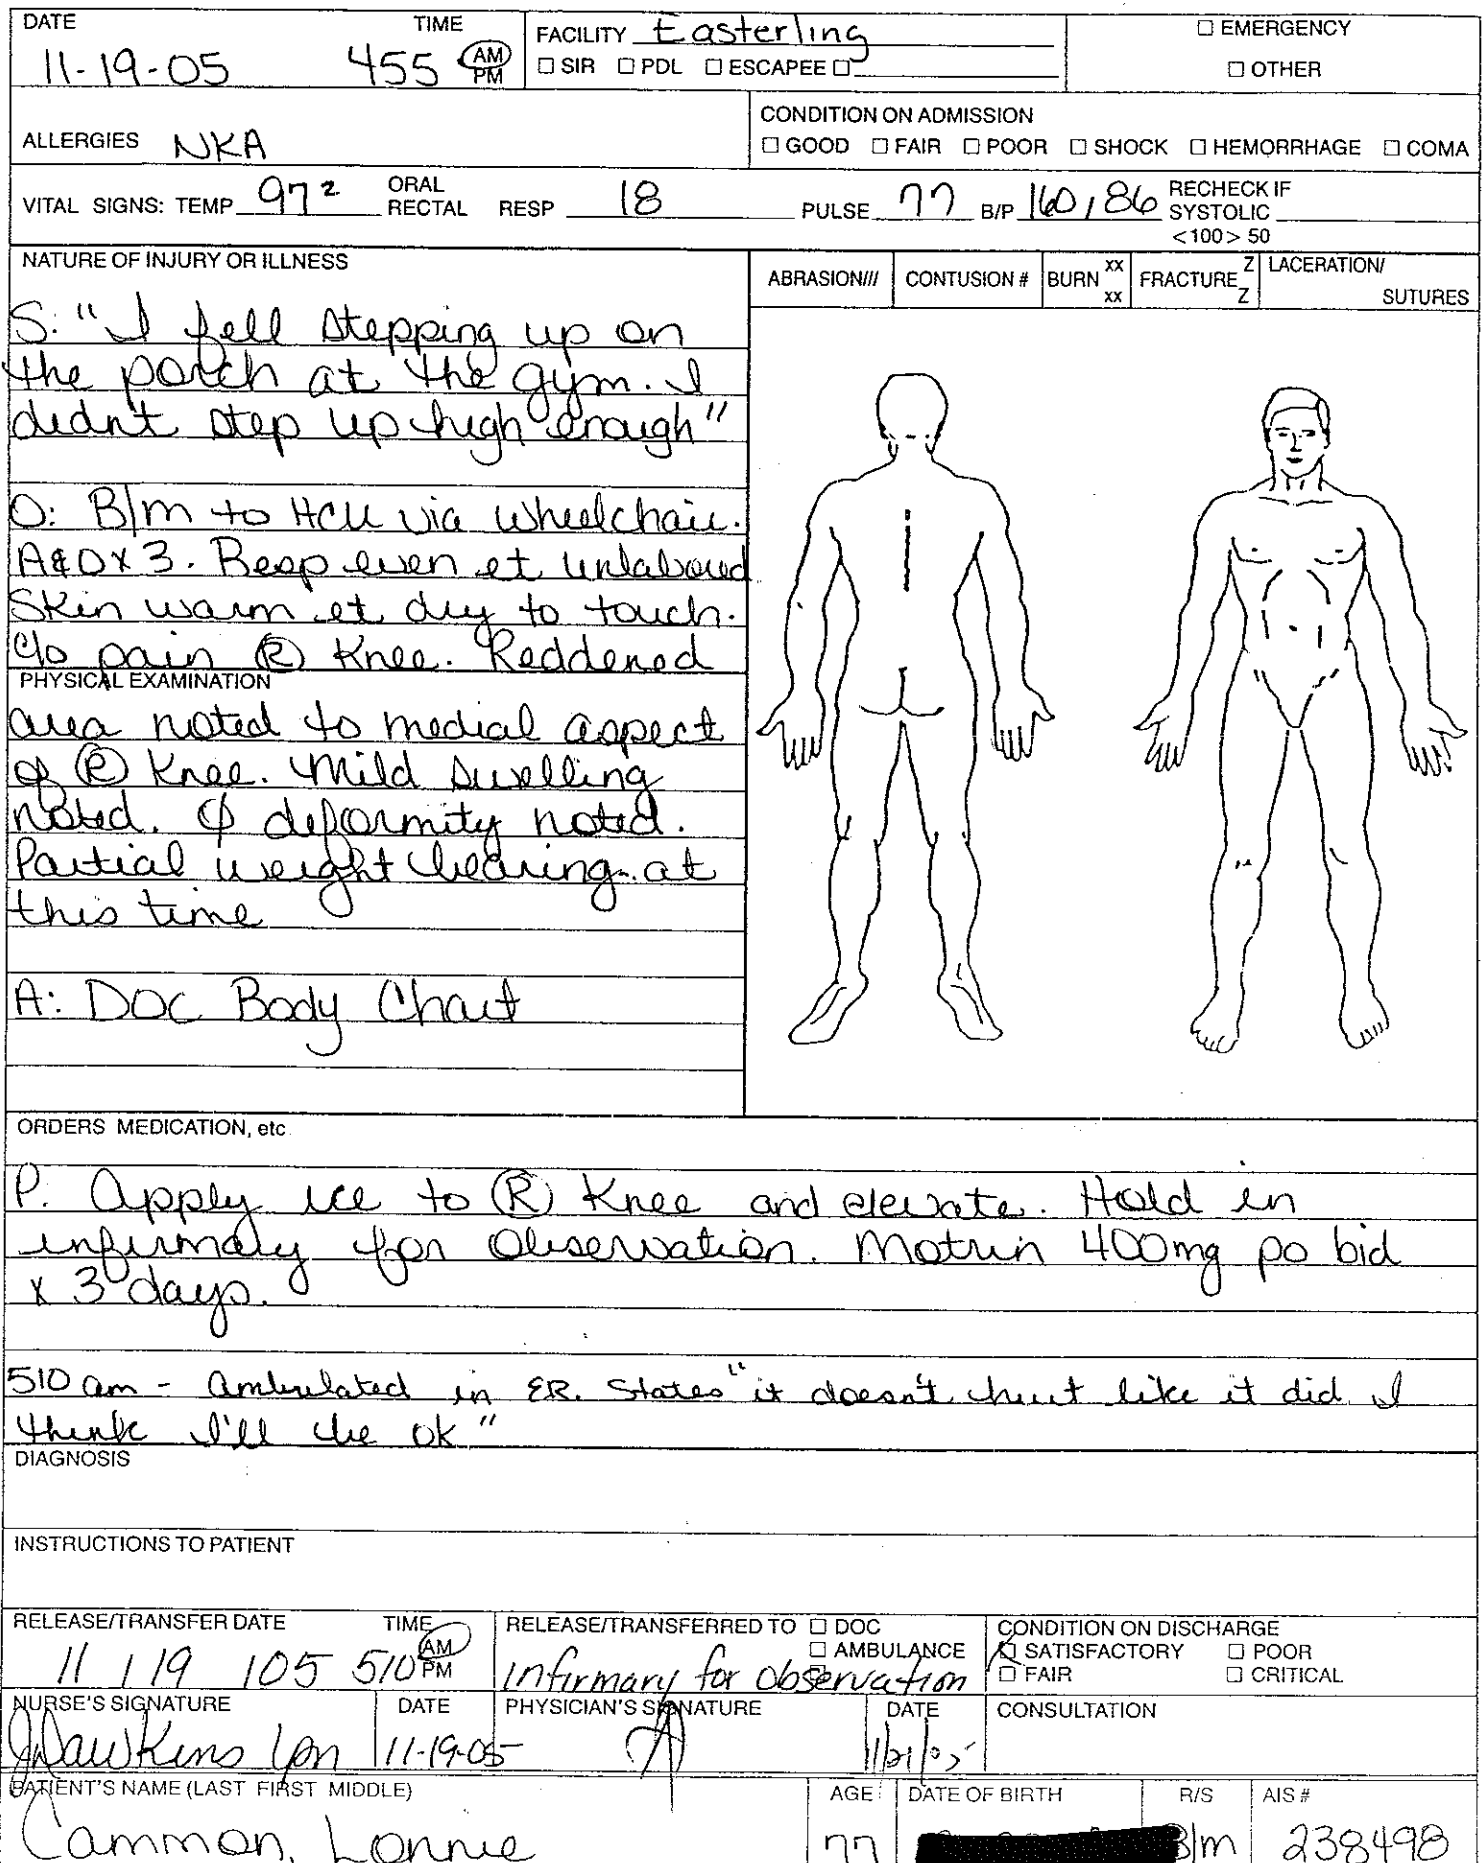 DATE TIME FACILITY Easterling ☐ EMERGENCY
11-19-05 455 AM PM ☐ SIR ☐ PDL ☐ ESCAPEE ☐ ☐ OTHER
ALLERGIES NKA
CONDITION ON ADMISSION
☐ GOOD ☐ FAIR ☐ POOR ☐ SHOCK ☐ HEMORRHAGE ☐ COMA
VITAL SIGNS: TEMP 97² ORAL RECTAL RESP 18 PULSE 77 B/P 160/86 RECHECK IF SYSTOLIC
<100> 50
NATURE OF INJURY OR ILLNESS
ABRASION/// CONTUSION # BURN xx xx FRACTURE Z Z LACERATION/ SUTURES
S: "I fell stepping up on
the porch at the gym. I
didn't step up high enough"
O: B/m to HCU via wheelchair.
A&Ox3. Resp even et unlabored
Skin warm et dry to touch.
c/o pain Ⓡ Knee. Reddened
PHYSICAL EXAMINATION
area noted to medial aspect
of Ⓡ Knee. Mild swelling
noted. ϕ deformity noted.
Partial weight bearing at
this time
A: DOC Body Chart
ORDERS MEDICATION, etc
P. Apply ice to Ⓡ Knee and elevate. Hold in
infirmary for observation. Motrin 400mg po bid
x 3 days.
510 am - ambulated in ER. States "it doesn't hurt like it did I
think I'll be ok"
DIAGNOSIS
INSTRUCTIONS TO PATIENT
RELEASE/TRANSFER DATE TIME RELEASE/TRANSFERRED TO ☐ DOC CONDITION ON DISCHARGE
11 / 19 / 05 510 AM PM ☐ AMBULANCE ☒ SATISFACTORY ☐ POOR
Infirmary for observation ☐ FAIR ☐ CRITICAL
NURSE'S SIGNATURE DATE PHYSICIAN'S SIGNATURE DATE CONSULTATION
J Dawkins lpn 11-19-05 11/21/05
PATIENT'S NAME (LAST FIRST MIDDLE) AGE DATE OF BIRTH R/S AIS #
Cammon, Lonnie 77 B/m 238498